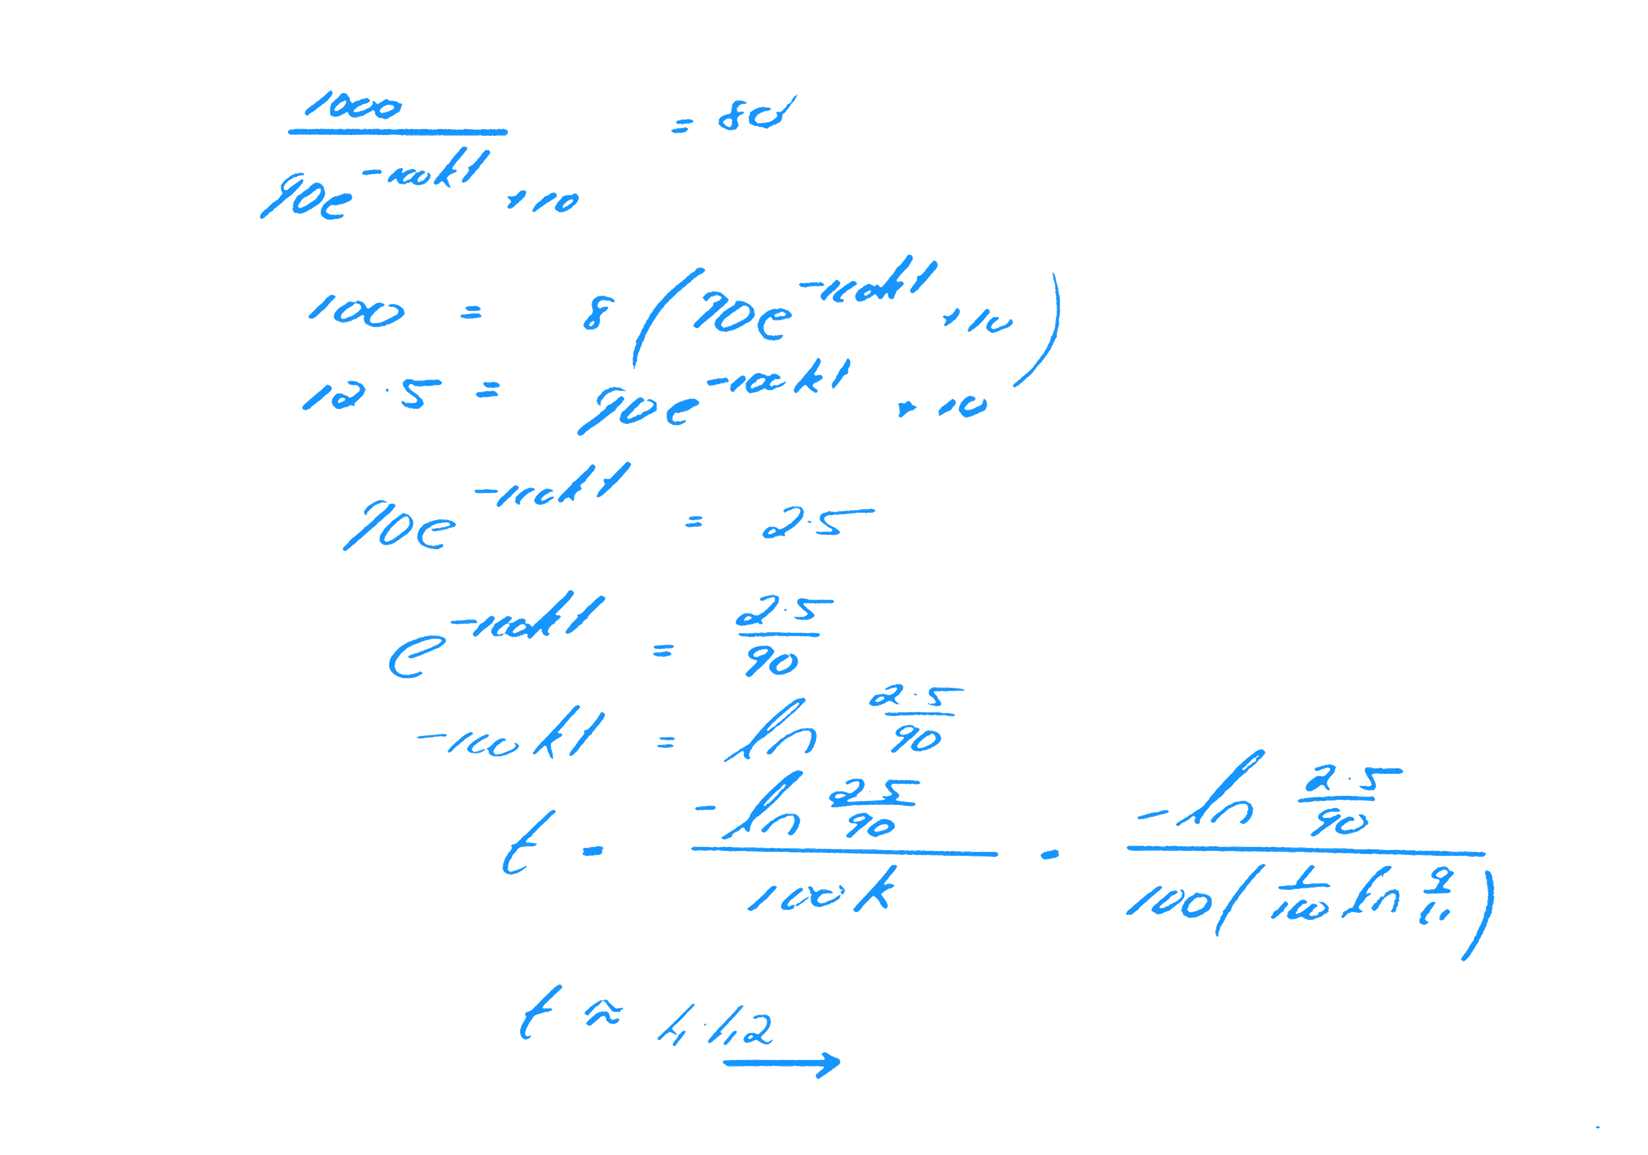 1000 / (90e^(-100kt) + 10) = 80
100 = 8(90e^(-100kt) + 10)
12.5 = 90e^(-100kt) + 10
90e^(-100kt) = 2.5
e^(-100kt) = 2.5/90
-100kt = ln 2.5/90
t = (-ln 2.5/90) / (100k) = (-ln 2.5/90) / (100(1/100 ln 9/4))
t ≈ 4.42 →